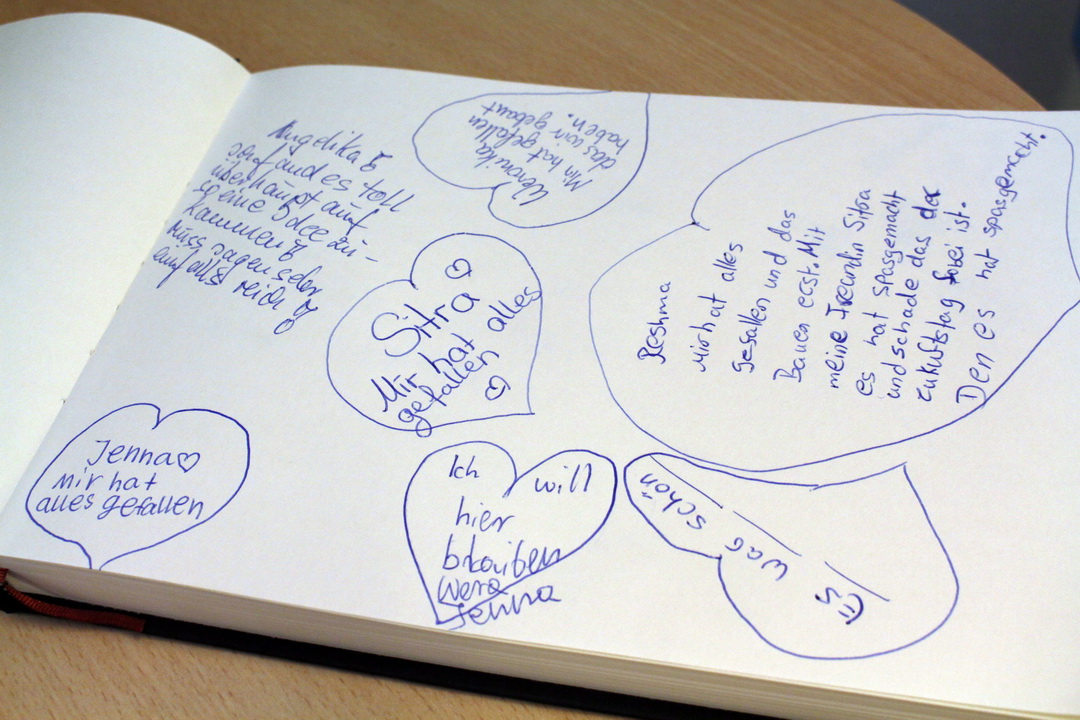 Angelika B
fand es toll
überhaupt auf
so eine Idee zu-
kommen
muss sagen sehr
einfalls reich
Veronika
Mir hat gefallen
das wir gebaut
haben.
Sitra ♡
Mir hat alles
gefallen ♡
Reshma
Mir hat alles
gefallen und das
Bauen erst. Mit
meine Freundin Sitra
es hat spasgemacht
und schade das der
zukuftstag forbei ist.
Den es hat spasgemacht.
Jenna ♡
mir hat
alles gefallen
Ich will
hier
blaiben
Jenna
Es
war
schön